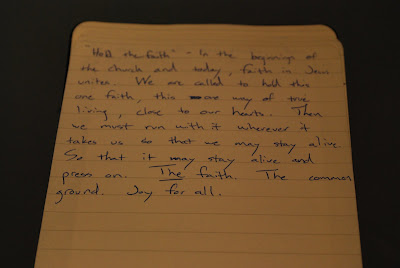 "Hold the Faith" - In the beginnings of
the church and today, faith in Jesus
unites. We are called to hold this
one faith, this one way of true
living, close to our hearts. Then
we must run with it wherever it
takes us so that we may stay alive.
So that it may stay alive and
press on. The faith. The common
ground. Joy for all.